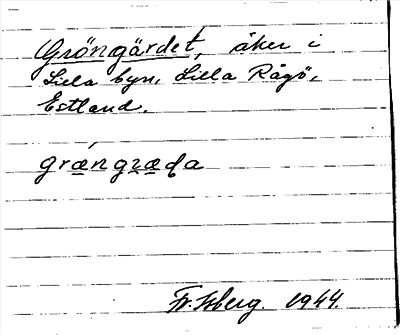 Gröngärdet, åker i
Lilla byn, Lilla Rågö,
Estland.
grǽngræda
Fr. Isberg. 1944.